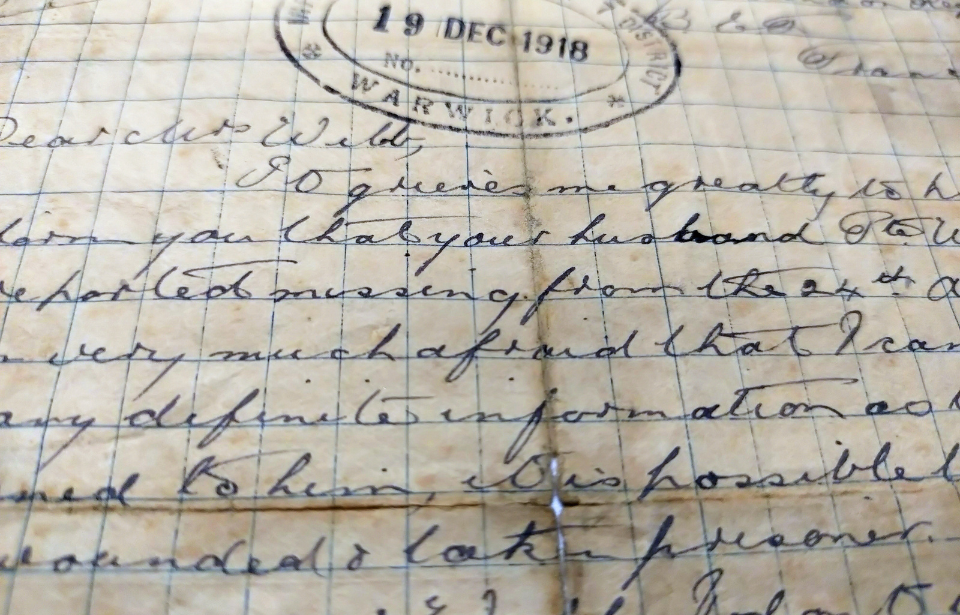 19 DEC 1918
No. ............
DISTRICT
* WARWICK. *
B E F
Dear Mrs Webb,
It grieves me greatly to
form you that your husband Pte W
reported missing from the 24th
very much afraid that I can
any definite information as
ned to him, it is possible
wounded & taken prisoner.